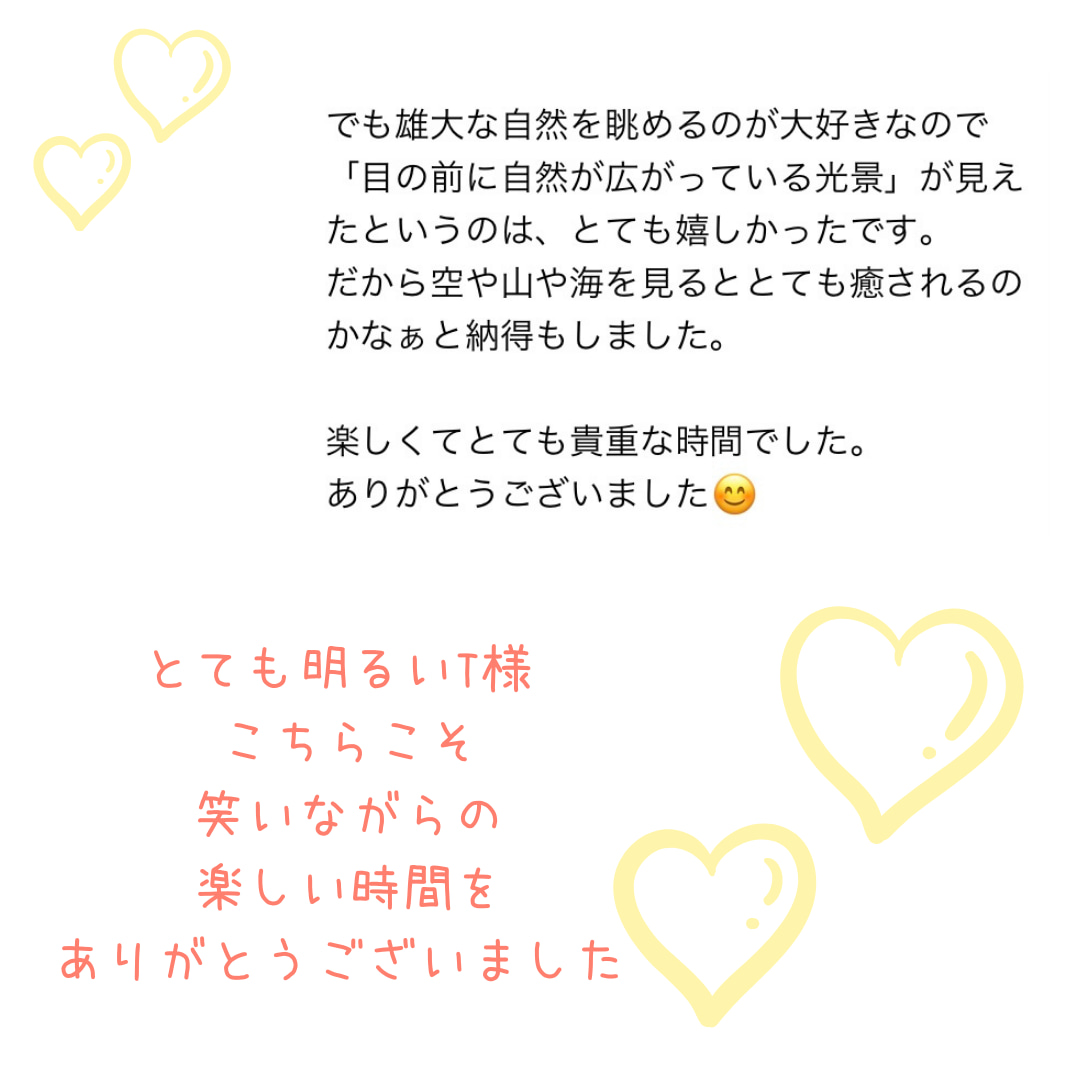 でも雄大な自然を眺めるのが大好きなので
「目の前に自然が広がっている光景」が見え
たというのは、とても嬉しかったです。
だから空や山や海を見るととても癒されるの
かなぁと納得もしました。
楽しくてとても貴重な時間でした。
ありがとうございました😊
とても明るいT様
こちらこそ
笑いながらの
楽しい時間を
ありがとうございました